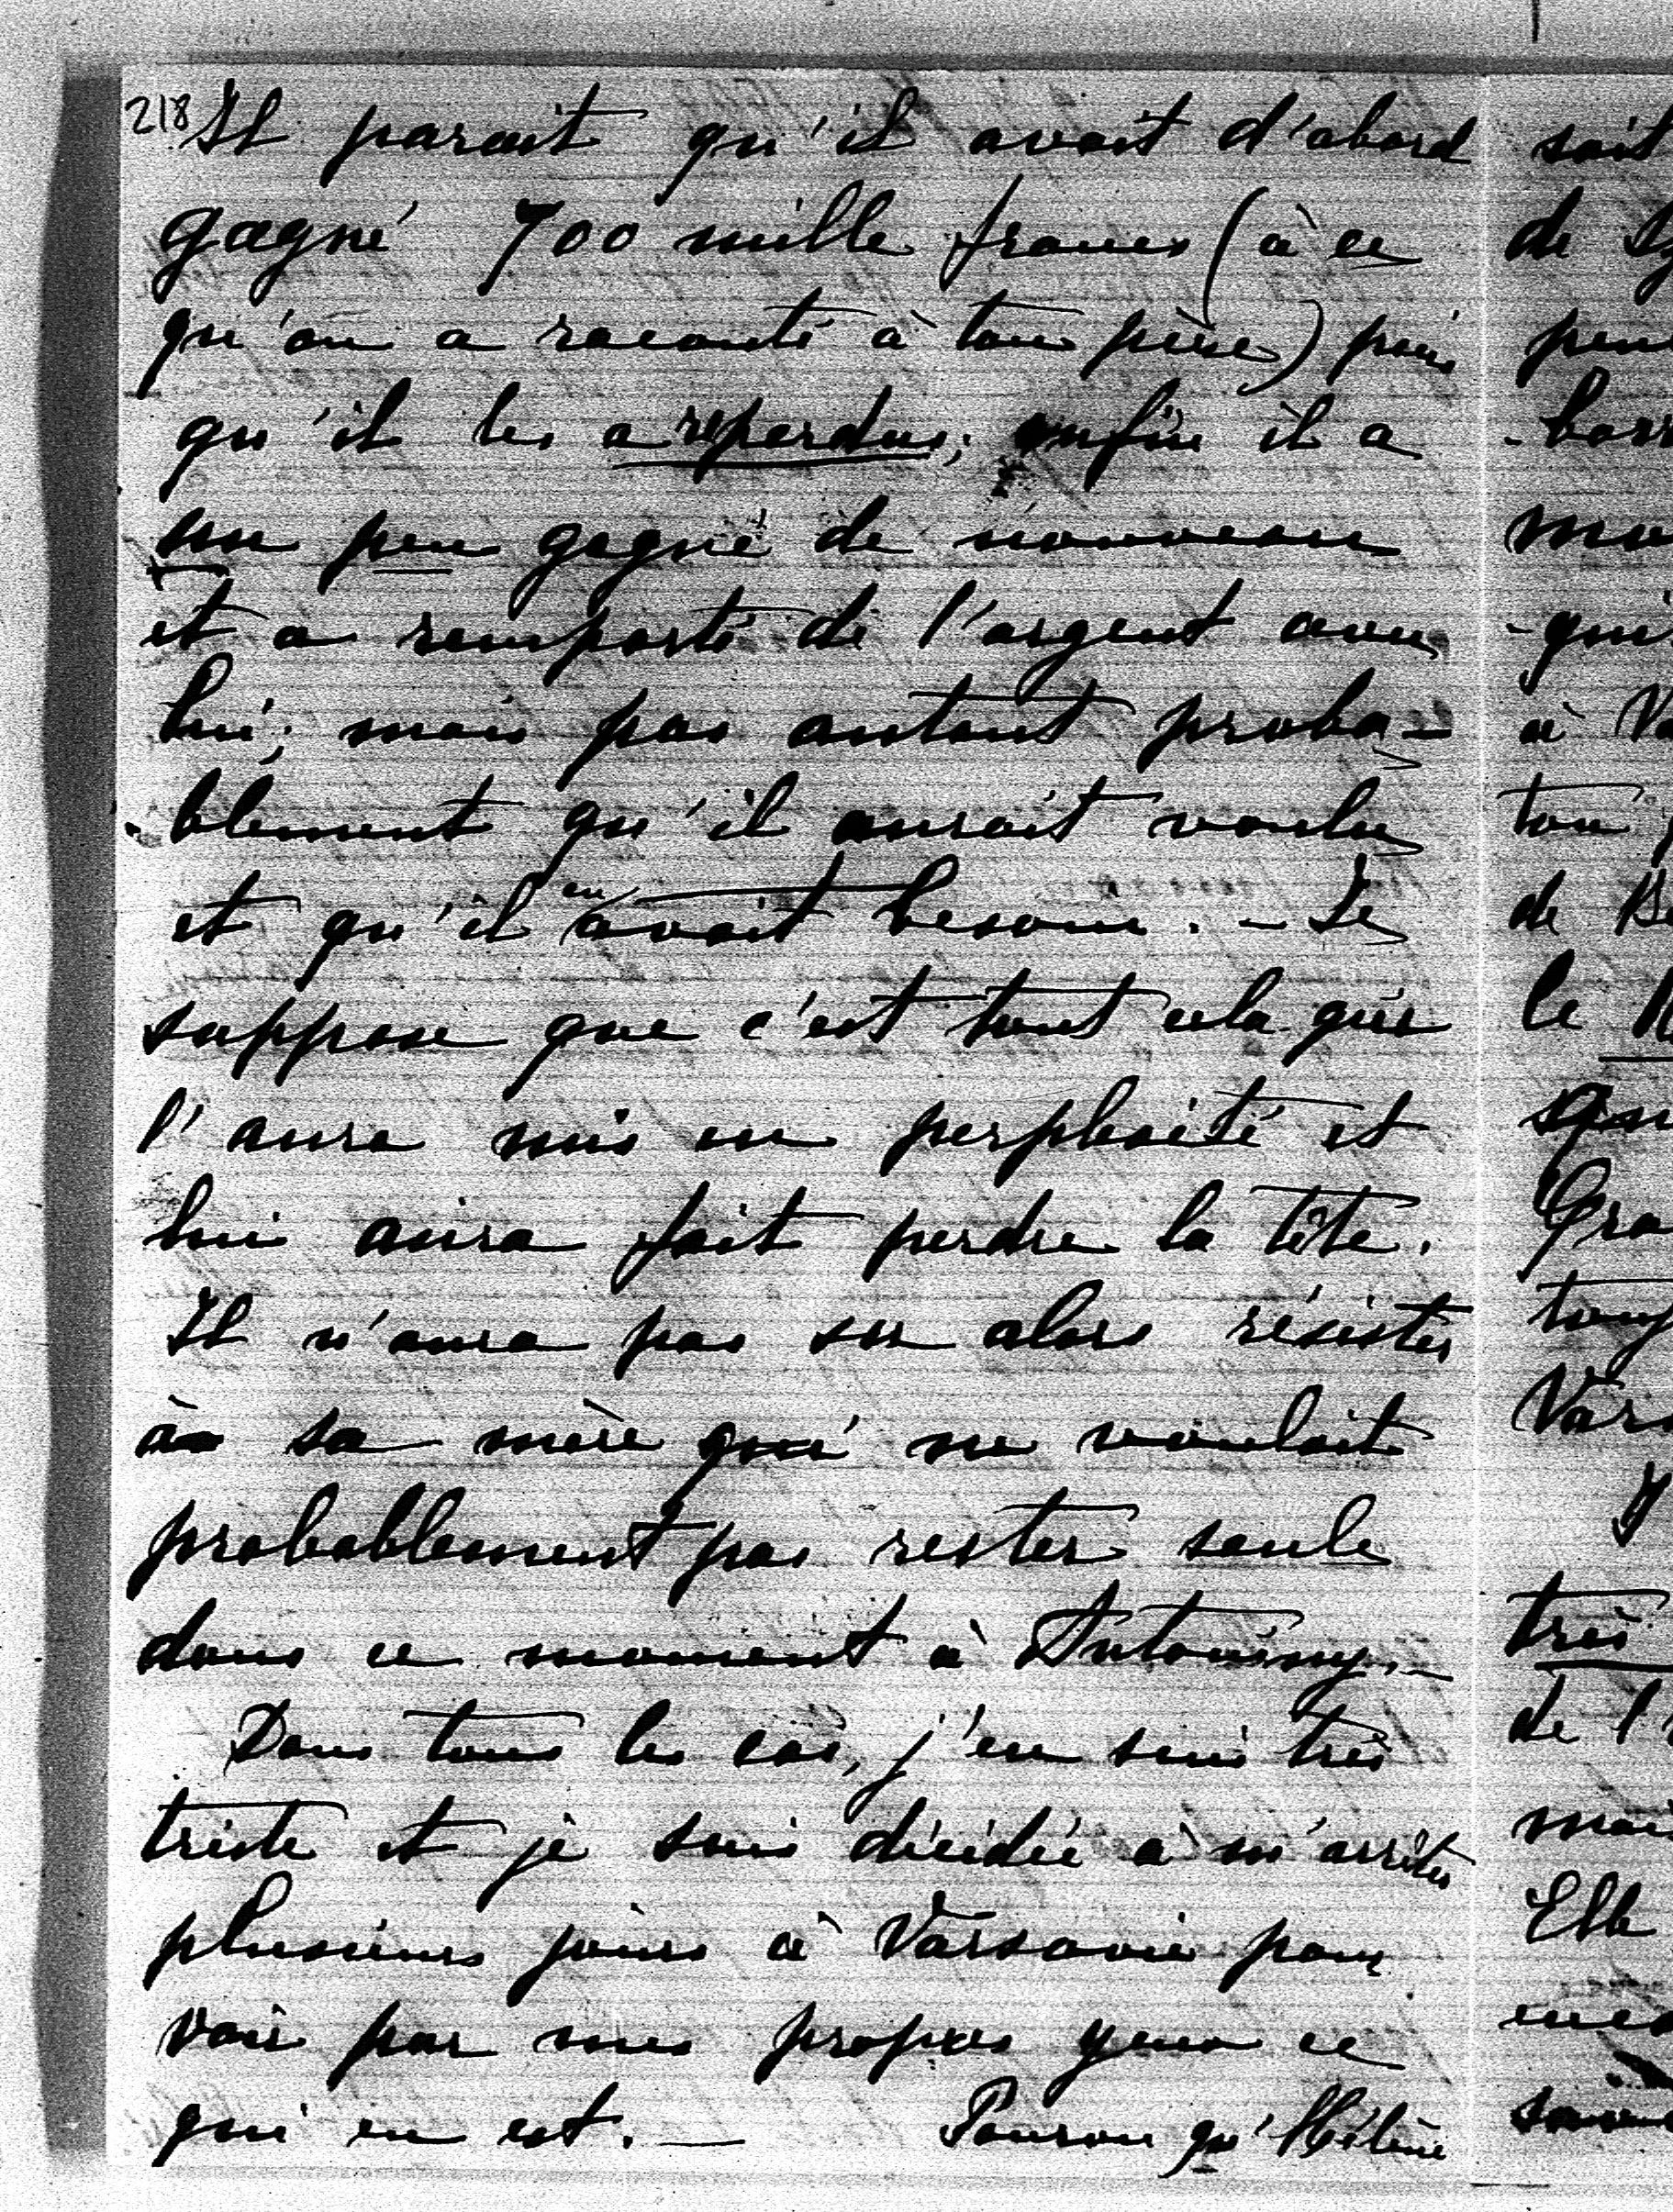 218 Il parait qu'il avait d'abord
gagné 700 mille francs (à ce
qu'on a raconté à ton père) puis
qu'il les a reperdus; enfin il a
un peu gagné de nouveau
et a remporté de l'argent avec
lui; mais pas autant proba-
-blement qu'il aurait voulu
et qu'il en avait besoin. - Je
suppose que c'est tout cela qui
l'aura mis en perplexité et
lui aura fait perdre la tête.
Il n'aura pas su alors résister
à sa mère qui ne voulait
probablement pas rester seule
dans ce moment à Antoniny. -
Dans tous les cas, j'en suis très
triste et je suis décidée à m'arrêter
plusieurs jours à Varsovie pour
voir par mes propres yeux ce
qui en est. — Pourvu qu'Hélène
soit
de
à
ton
de
le
très
de l'
Elle